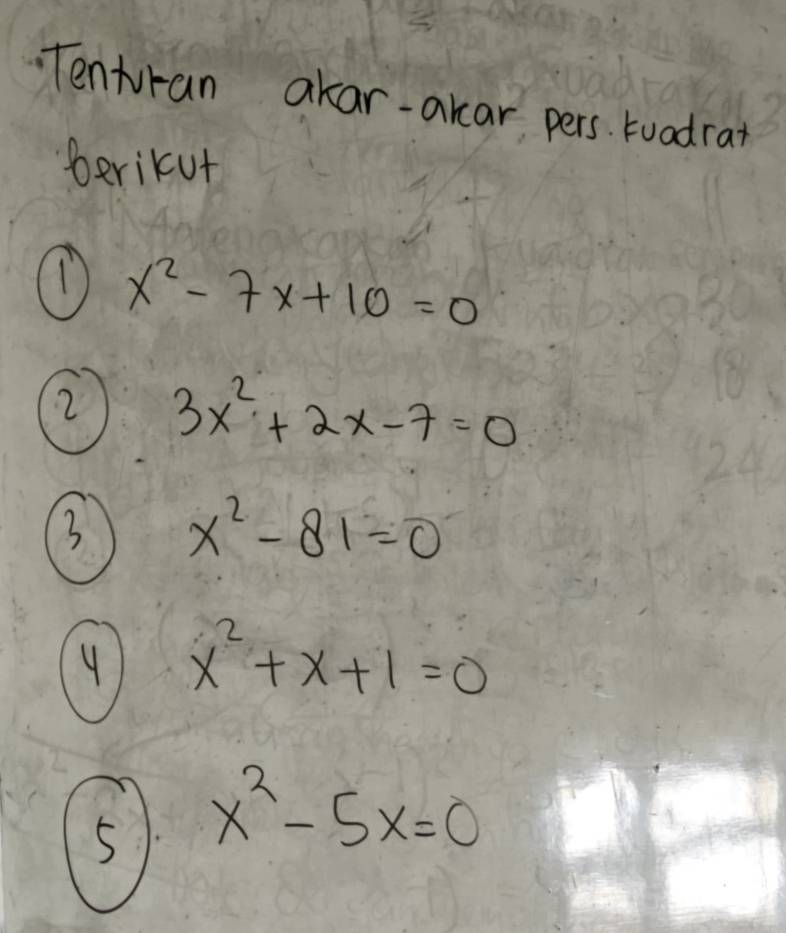 Tentukan akar-akar pers. kuadrat
berikut
① x² - 7x + 10 = 0
② 3x² + 2x - 7 = 0
③ x² - 81 = 0
④ x² + x + 1 = 0
⑤ x² - 5x = 0